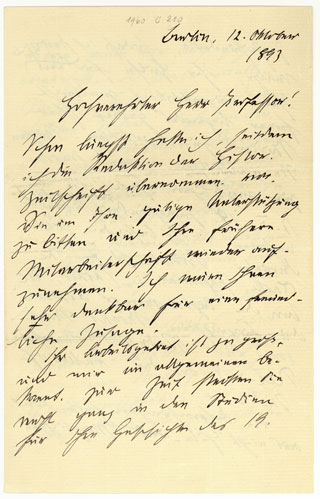 1960 C 219
Berlin, 12. Oktober
1893
Hochverehrter Herr Professor!
Schon längst hatte ich, seitdem
ich die Redaktion der Histor.
Zeitschrift übernommen, vor,
Sie um Ihre gütige Unterstützung
zu bitten und Ihre frühere
Mitarbeiterschaft wieder auf-
zunehmen. Ich wäre Ihnen
sehr dankbar für eine freund-
liche Zusage.
Ihr Arbeitsgebiet ist ja groß,
und mir im allgemeinen be-
kannt. Zur Zeit stecken Sie
wohl ganz in den Studien
für Ihre Geschichte des 19.